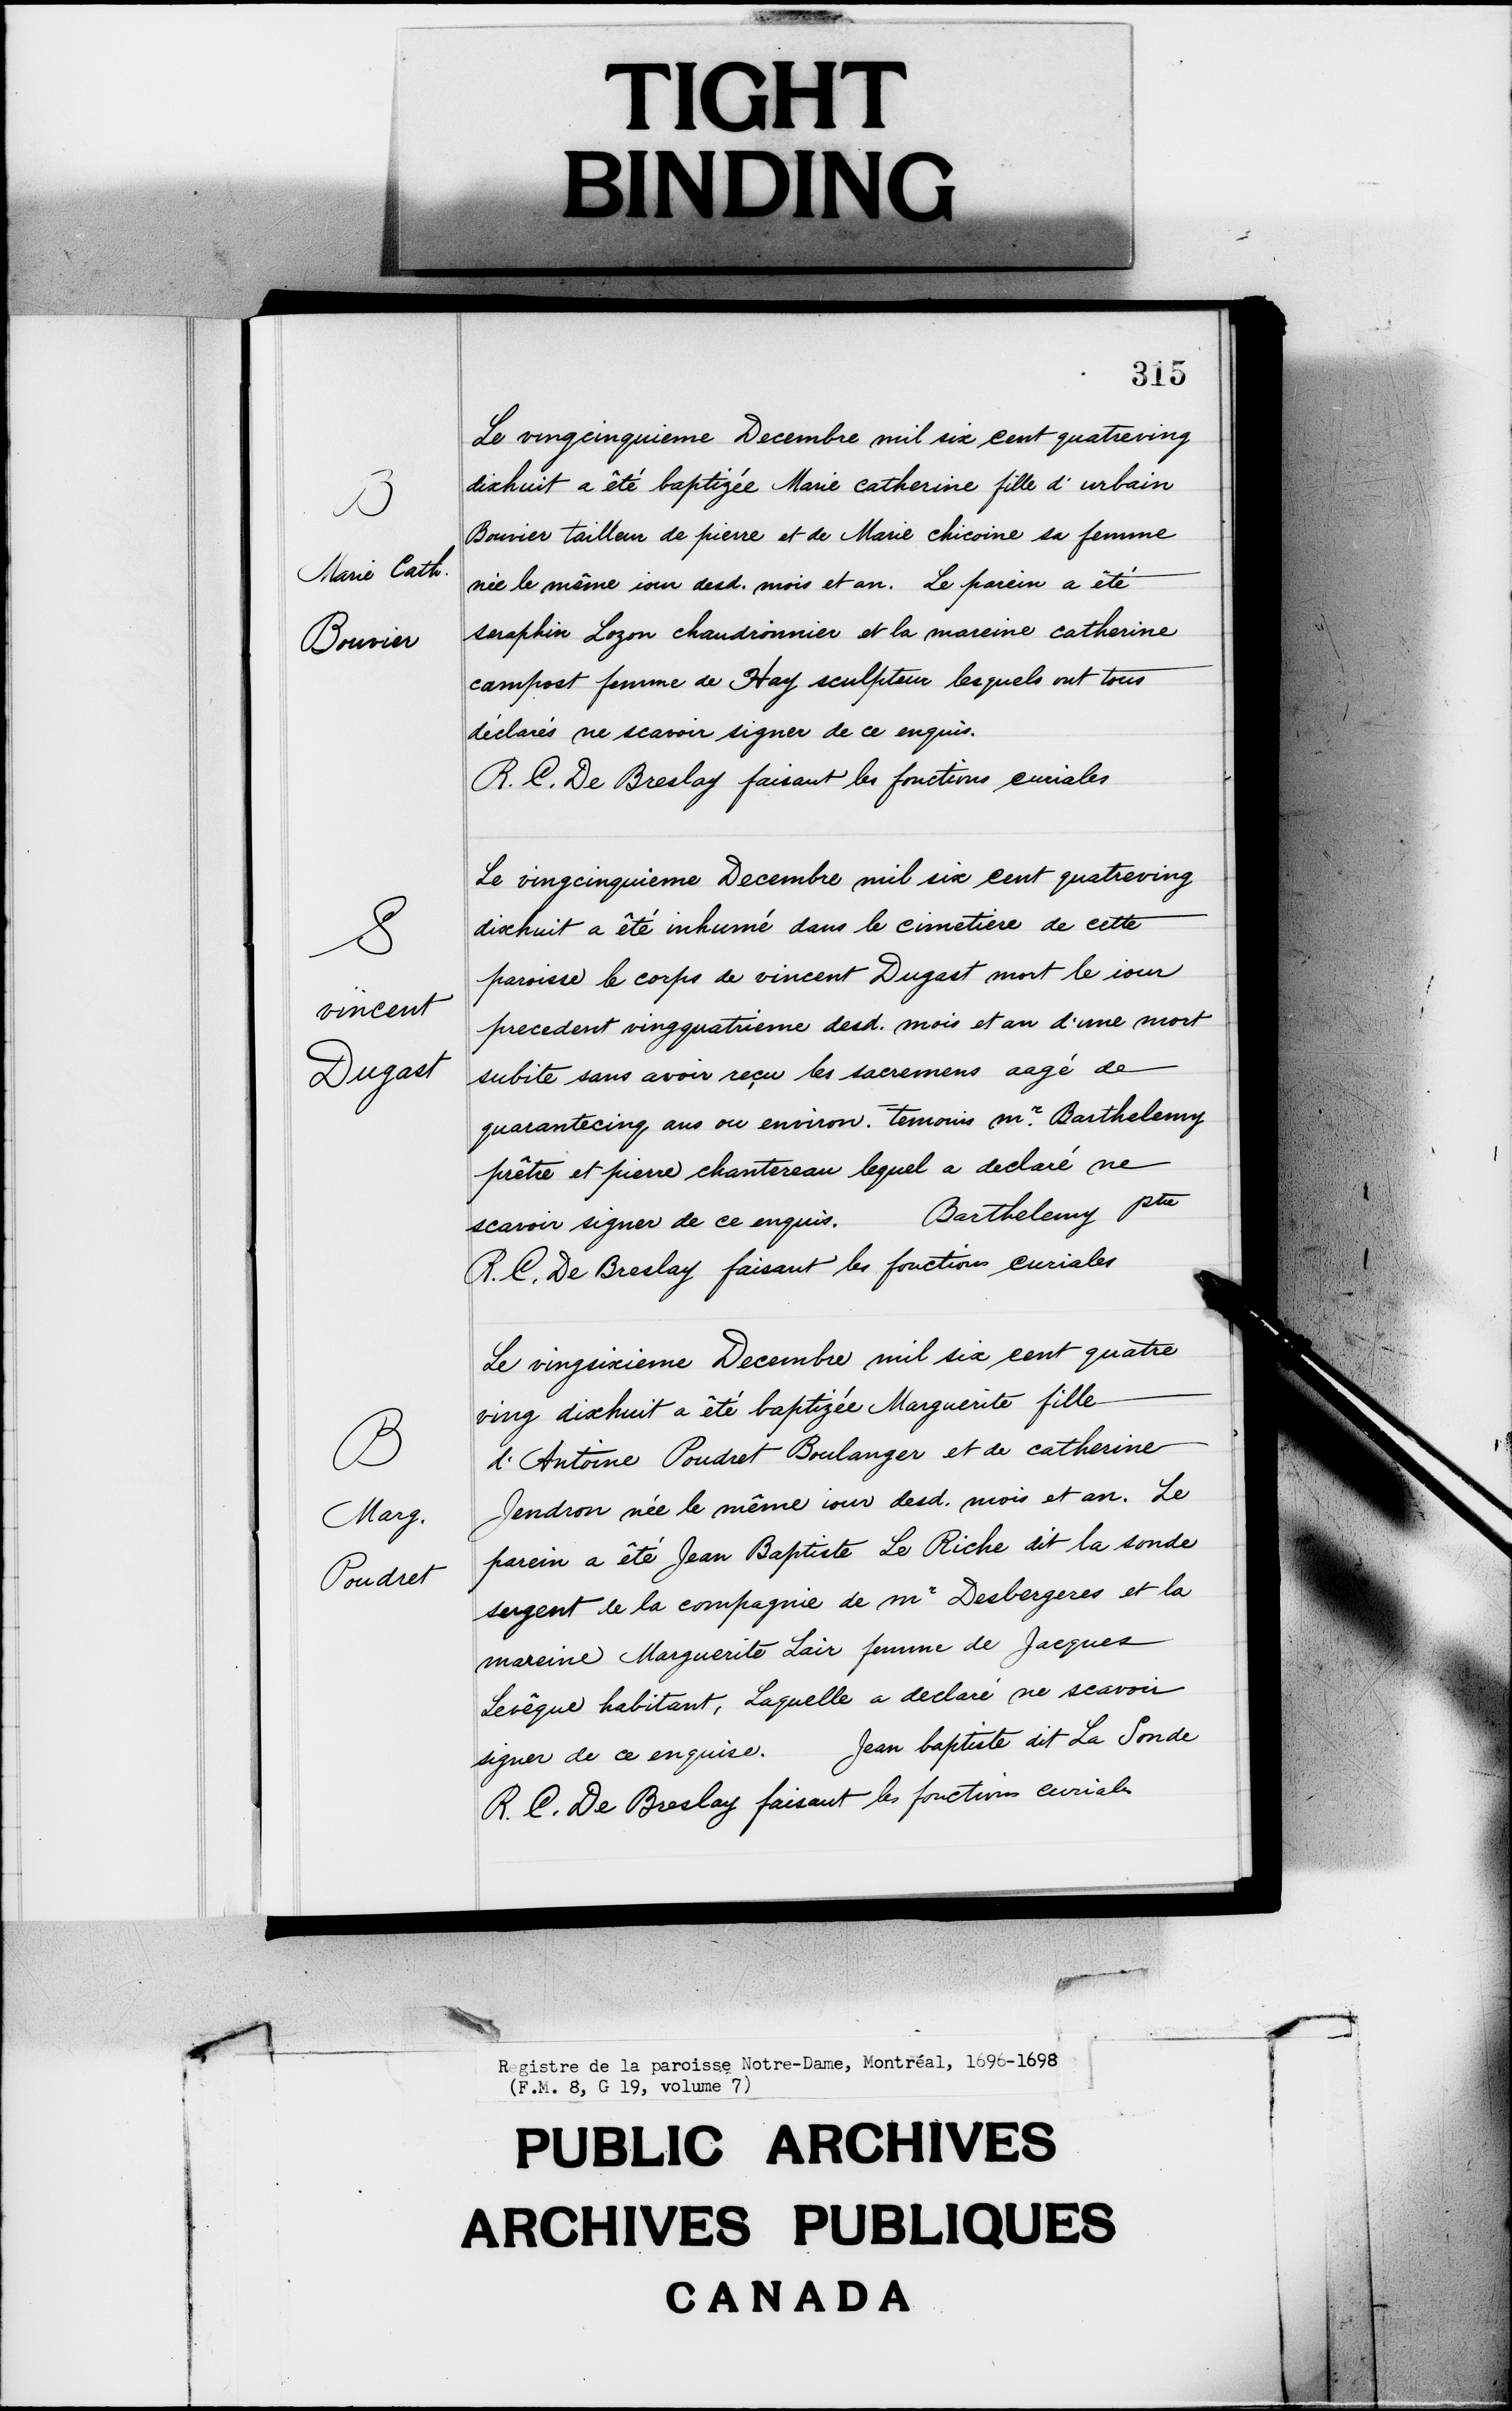 TIGHT
BINDING
315
Le vingcinquieme Decembre mil six cent quatreving
dixhuit a êté baptizée Marie catherine fille d'urbain
Bouvier tailleur de pierre et de Marie chicoine sa femme
née le même iour desd. mois et an. Le parein a êté
seraphin Lozon chaudronnier et la mareine catherine
campost femme de Hay sculpteur lesquels ont tous
déclarés ne scavoir signer de ce enquis.
R. C. De Breslay faisant les fonctions curiales
B
Marie Cath.
Bouvier
Le vingcinquieme Decembre mil six cent quatreving
dixhuit a êté inhumé dans le cimetiere de cette
paroisse le corps de vincent Dugast mort le iour
precedent vingquatrieme desd. mois et an d'une mort
subite sans avoir reçu les sacremens aagé de
quarantecinq ans ou environ. temoins mr. Barthelemy
prêtre et pierre chantereau lequel a declaré ne
scavoir signer de ce enquis. Barthelemy ptre
R. C. De Breslay faisant les fonctions curiales
S
vincent
Dugast
Le vingsixieme Decembre mil six cent quatre
ving dixhuit a êté baptizée Marguerite fille
d'Antoine Poudret Boulanger et de catherine
Jendron née le même iour desd. mois et an. Le
parein a êté Jean Baptiste Le Riche dit la sonde
sergent de la compagnie de mr Desbergeres et la
mareine Marguerite Lair femme de Jacques
Levêque habitant, Laquelle a declaré ne scavoir
signer de ce enquise. Jean baptiste dit La Sonde
R. C. De Breslay faisant les fonctions curiales
B
Marg.
Poudret
Registre de la paroisse Notre-Dame, Montréal, 1696-1698
(F.M. 8, G 19, volume 7)
PUBLIC ARCHIVES
ARCHIVES PUBLIQUES
CANADA